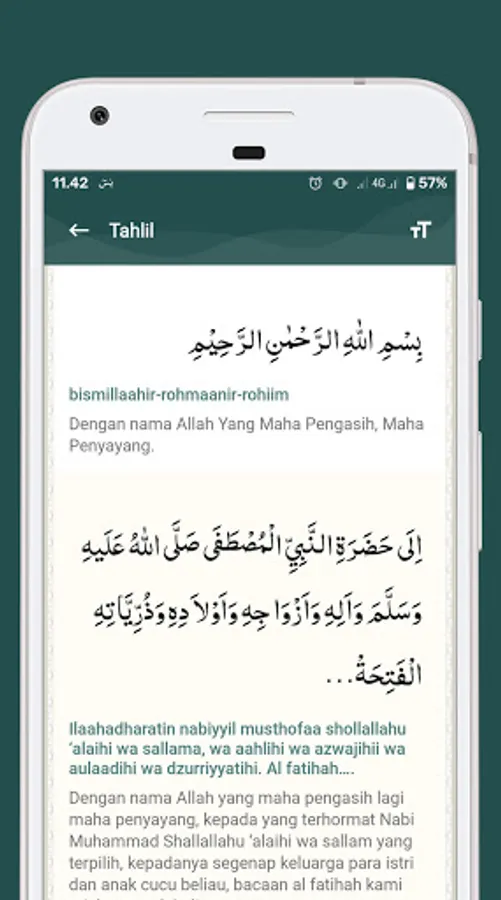 11.42 4G 57%
Tahlil
بِسْمِ اللهِ الرَّحْمٰنِ الرَّحِيْمِ
bismillaahir-rohmaanir-rohiim
Dengan nama Allah Yang Maha Pengasih, Maha
Penyayang.
اِلَى حَضَرَةِ النَّبِيِّ الْمُصْطَفَى صَلَّى اللهُ عَلَيهِ
وَسَلَّمَ وَآلِهِ وَاَزْوَا جِهِ وَاَوْلاَ دِهِ وَذُرِّيَّاتِهِ
الْفَتِحَةْ...
Ilaahadharatin nabiyyil musthofaa shollallahu
'alaihi wa sallama, wa aahlihi wa azwajihii wa
aulaadihi wa dzurriyyatihi. Al fatihah....
Dengan nama Allah yang maha pengasih lagi
maha penyayang, kepada yang terhormat Nabi
Muhammad Shallallahu 'alaihi wa sallam yang
terpilih, kepadanya segenap keluarga para istri
dan anak cucu beliau, bacaan al fatihah kami